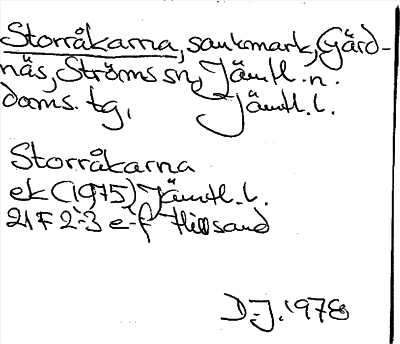 Storråkarna, sankmark, Gärd-
näs, Ströms sn, Jämtl. n.
doms. tg, Jämtl. l.
Storråkarna
ek (1975) Jämtl. l.
21 F 2-3 e-f Hillsand
D-J. 1978